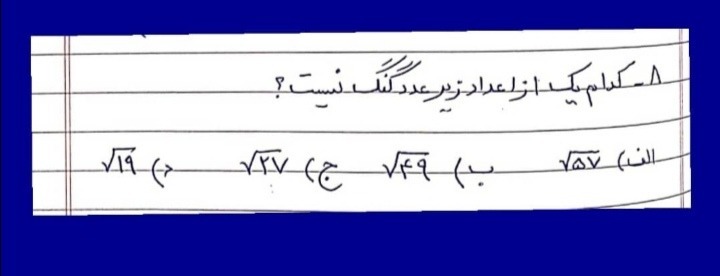 ۸- کدام یک از اعداد زیر عدد گنگ نیست؟
الف) √۵۷ ب) √۴۹ ج) √۲۷ د) √۱۹